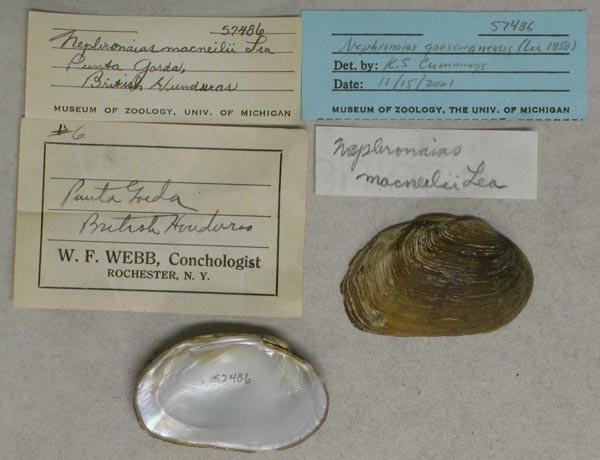 57486
Nephronaias macneilii Lea
Punta Gorda,
British Hunduras
MUSEUM OF ZOOLOGY, UNIV. OF MICHIGAN
57486
Nephronaias goascoranensis (Lea 1858)
Det. by: K.S Cummings
Date: 11/15/2001
MUSEUM OF ZOOLOGY, THE UNIV. OF MICHIGAN
#6
Punta Gorda
British Honduras
W. F. WEBB, Conchologist
ROCHESTER, N. Y.
Nephronaias
macneilii Lea
57486